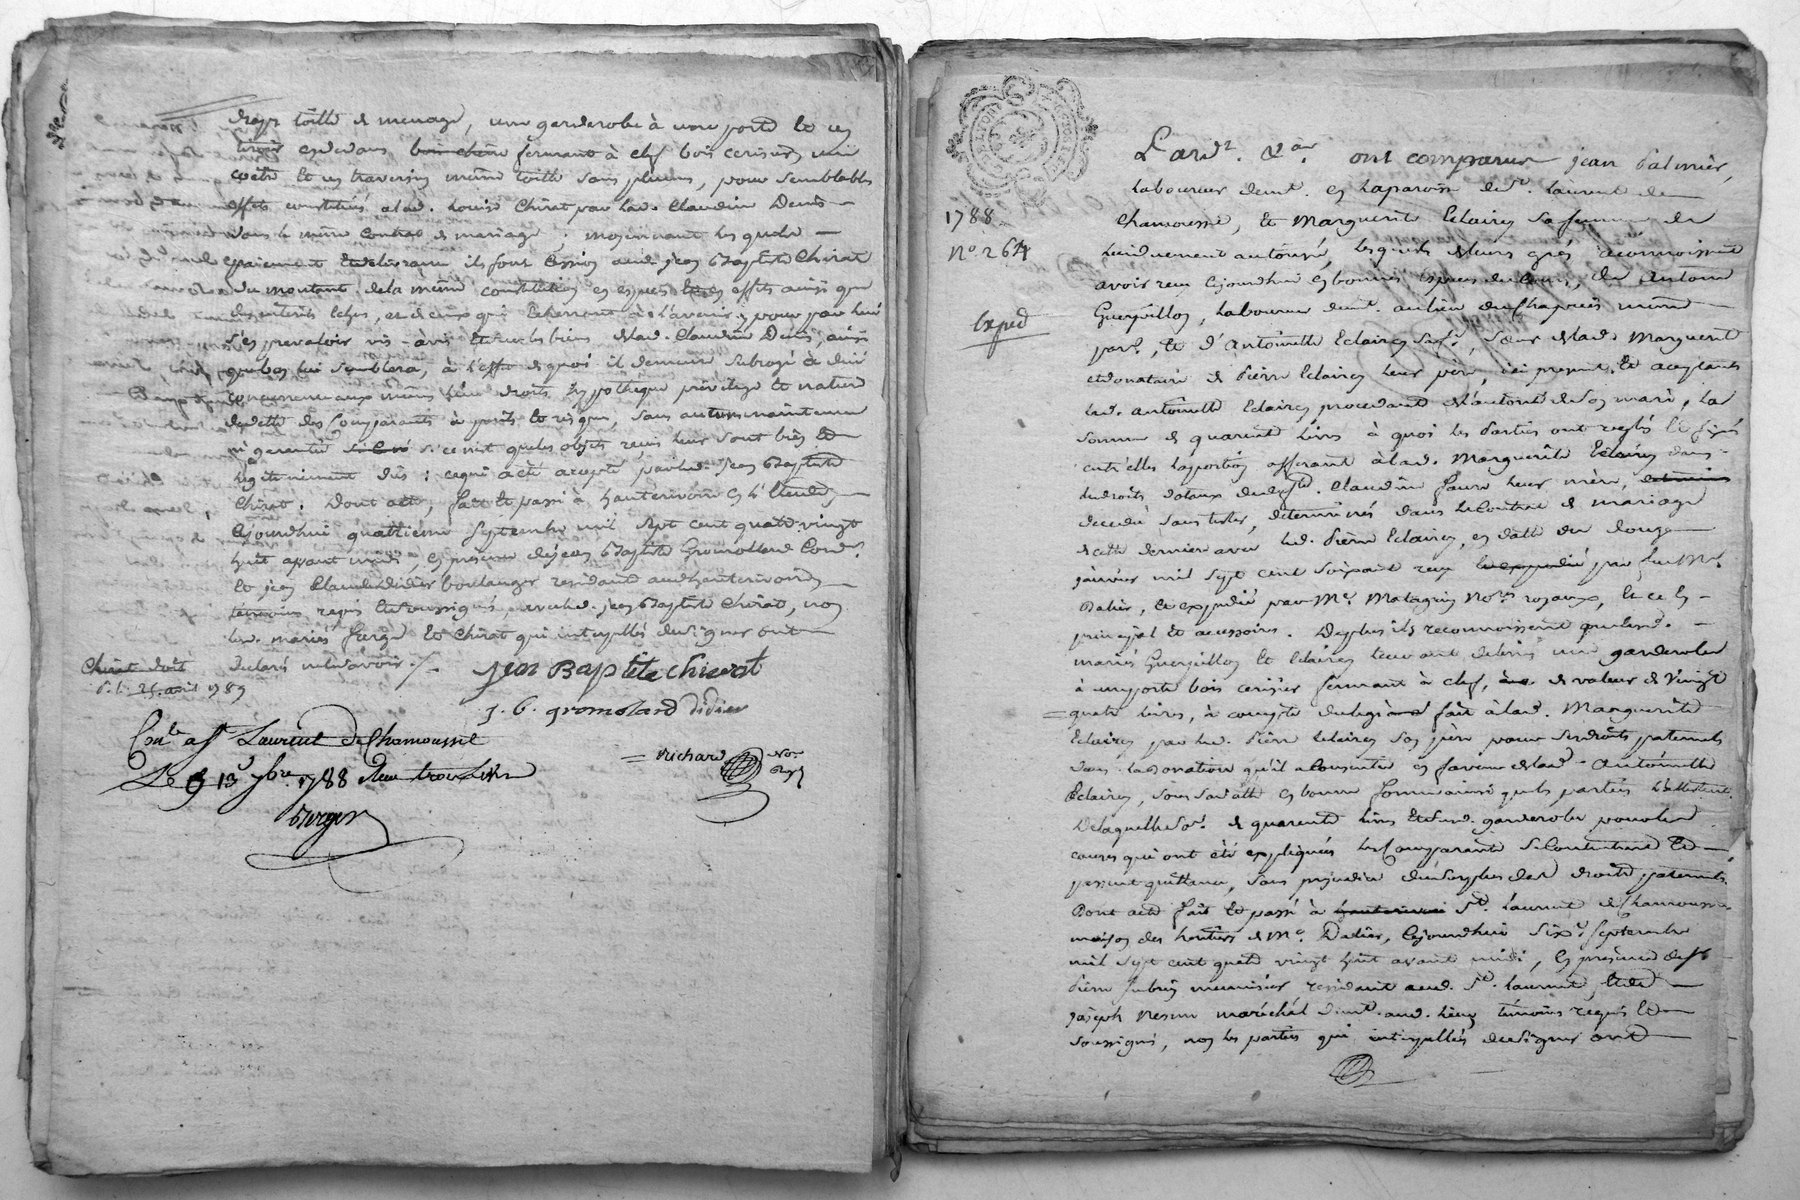 draps toille de menage, une garderobe à une porte et un
tiroir endedans bois chêne fermant à clef bois cerisier, une
coëtre et un traversin même toille sans plume, pour semblables
effets constitués alad. Louise Chirat par lad. Claudine Denis
dans le même contrat de mariage ; moyennant lesquels
payement et delivrance ils font cession aud. jean Baptiste Chirat
du montant de la même constitution en especes et en effets ainsi que
des interêts echus, et de ceux qui echerront à l'avenir, pour par lui
s'en prevaloir vis-àvis et sur les biens de lad. Claudine Denis, ainsi
que bon lui semblera, à l'effet de quoi il demeure subrogé à due
concurrence aux mêmes lieu droits hypothèque privilège et nature
de dette des Comparants à perils et risques, sans autre maintenue
ni garentie si ce n'est que les objets reçus leur sont bien et
legitimement dûs : ce qui a été accepté par led. jean Baptiste
Chirat. Dont acte, fait et passé à hauterivoire en l'Etude,
cejourdhui quatrieme Septembre mil sept cent quatre vingt
huit avant midi, en présence de jean Baptiste Gromollard Cord.r
et jean Claude Didier boulanger residants aud. hauterivoire
temoins requis et soussignés avec led. jean Baptiste Chirat, non
lesd. mariés farge et Chirat qui interpellés de signer ont
declaré ne le savoir ./.
Chirat doit
25 avril 1789
jean Baptiste Chirat
j. b. gromolard Didier
Con.le a St Laurent de Chamousset
Le 13 7bre 1788 Reçu
Berger
Richard No.re
Roy.l
1788
No 264
Exped
Pardt. &ar. ont comparu jean Palmier,
laboureur demt. en la paroisse de St. Laurent de
Chamousset, et Marguerite Eclairey sa femme de
lui duement autorisée, lesquels de leurs grés reconnoissent
avoir reçu cejourdhui en bonnes especes de Cours, de Antoine
Guerpillon, laboureur demt. au lieu du
parse, et d'Antoinette Eclairey saf.e, sœur de lad. Marguerite
et donataire de Pierre Eclairey leur père, ici present, et acceptants
lad. Antoinette Eclairey procedante de l'autorité de son mari, la
somme de quarente livres à quoi les Parties ont reglés et fixés
entr'elles la portion afferante à lad. Marguerite Eclairey dans
les droits dotaux de Claudine faure leur mère,
decedée sans tester, determinés dans le Contrat de mariage
de cette derniere avec led. Pierre Eclairey, en datte du douze
janvier mil sept cent soixante reçu par feu Me.
Dalier, et expedié par Me. Matagrin No.re royaux, et ce en
principal et accessoires. De plus ils reconnoissent que lesd.
mariés Guerpillon et Eclairey leur ont delivré une garderobe
à une porte bois cerisier fermant à clef, de valeur de Vingt
quatre livres, à compte du legs fait à lad. Marguerite
Eclairey par led. Pierre Eclairey son père pour ses droits paternels
dans la donation qu'il a Consentie en faveur de lad. Antoinette
Eclairey, sous sa datte en bonne forme ainsi que les parties l'attestent.
De laquelle so.e de quarente livres et de lad. garderobe pour les
causes qui ont été expliquées les Comparants se contentent et
passent quittance, sans prejudice du surplus desd. droits paternels.
Dont acte fait et passé à hauterivoi St. Laurent de Chamousset
maison des heritiers de Me. Dalier, cejourdhui six.e Septembre
mil sept cent quatre vingt huit avant midi, en présence de Sr
Pierre meunisier residant aud. St. Laurent, et de
joseph maréchal demt. aud. lieu, témoins requis et
soussignés, non les parties qui interpellées de signer ont